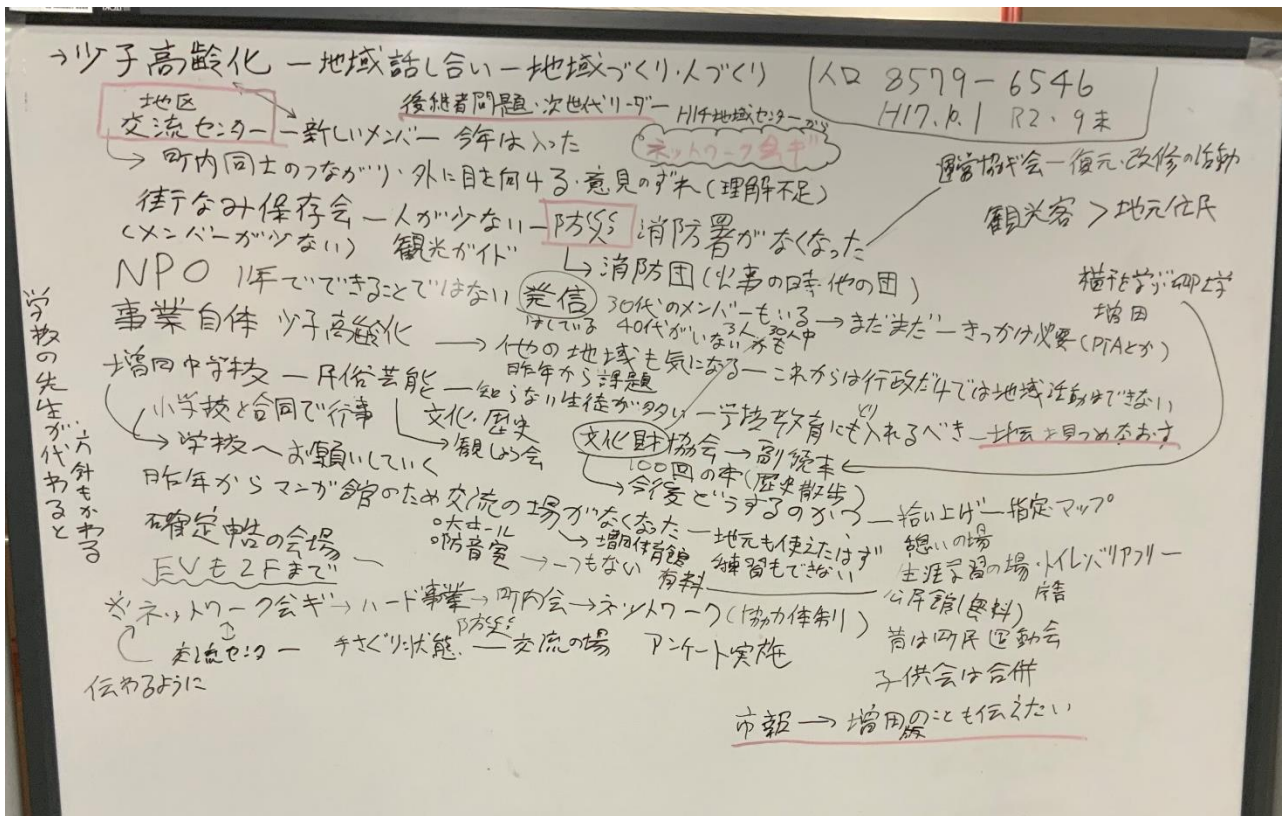 →少子高齢化 ー地域話し合いー地域づくり・人づくり
人口 8579ー6546
H17.10.1 R2.9末
地区
交流センターー新しいメンバー 今年は入った
後継者問題・次世代リーダー
H14地域センターから
ネットワーク会ギ
→町内同士のつながり・外に目を向ける・意見のずれ(理解不足)
運営協ギ会ー復元・改修の活動
観光客>地元住民
街なみ保存会ー人が少ないー防災 消防署がなくなった
(メンバーが少ない) 観光ガイド
→消防団(火事の時・他の団)
NPO 1年でできることではない 発信
はしている
30代のメンバーもいる→まだまだーきっかけ必要(PTAとか)
40代がいない
横手を学ぶ
増田
事業自体 少子高齢化 →他の地域も気になるーこれからは行政だけでは地域活動はできない
昨年から課題
増田中学校ー民俗芸能ー知らない生徒が多いー学校教育にもとり入れるべきー地元を見つめなおす
小学校と合同で行事
文化・歴史
→観しょう会
文化財協会→副読本
100回の本(歴史散歩)
→学校へお願いしていく
→今後どうするのか?ー拾い上げー指定マップ
学校の先生が代わると
方針もかわる
昨年からマンガ館のため交流の場がなくなったー地元も使えたはず
練習もできない
○大ホール
○防音室ー1つもない
→増田体育館
有料
憩いの場
生涯学習の場・トイレバリアフリー
公民館(無料)
昔は町民運動会
子供会は合併
確定申告の会場
EVも2Fまで
※ネットワーク会ギ→ハード事業→町内会→ネットワーク(協力体制)
防災
交流センターー手さぐり状態ー交流の場 アンケート実施
伝わるように
市報→増田版のことも伝えたい